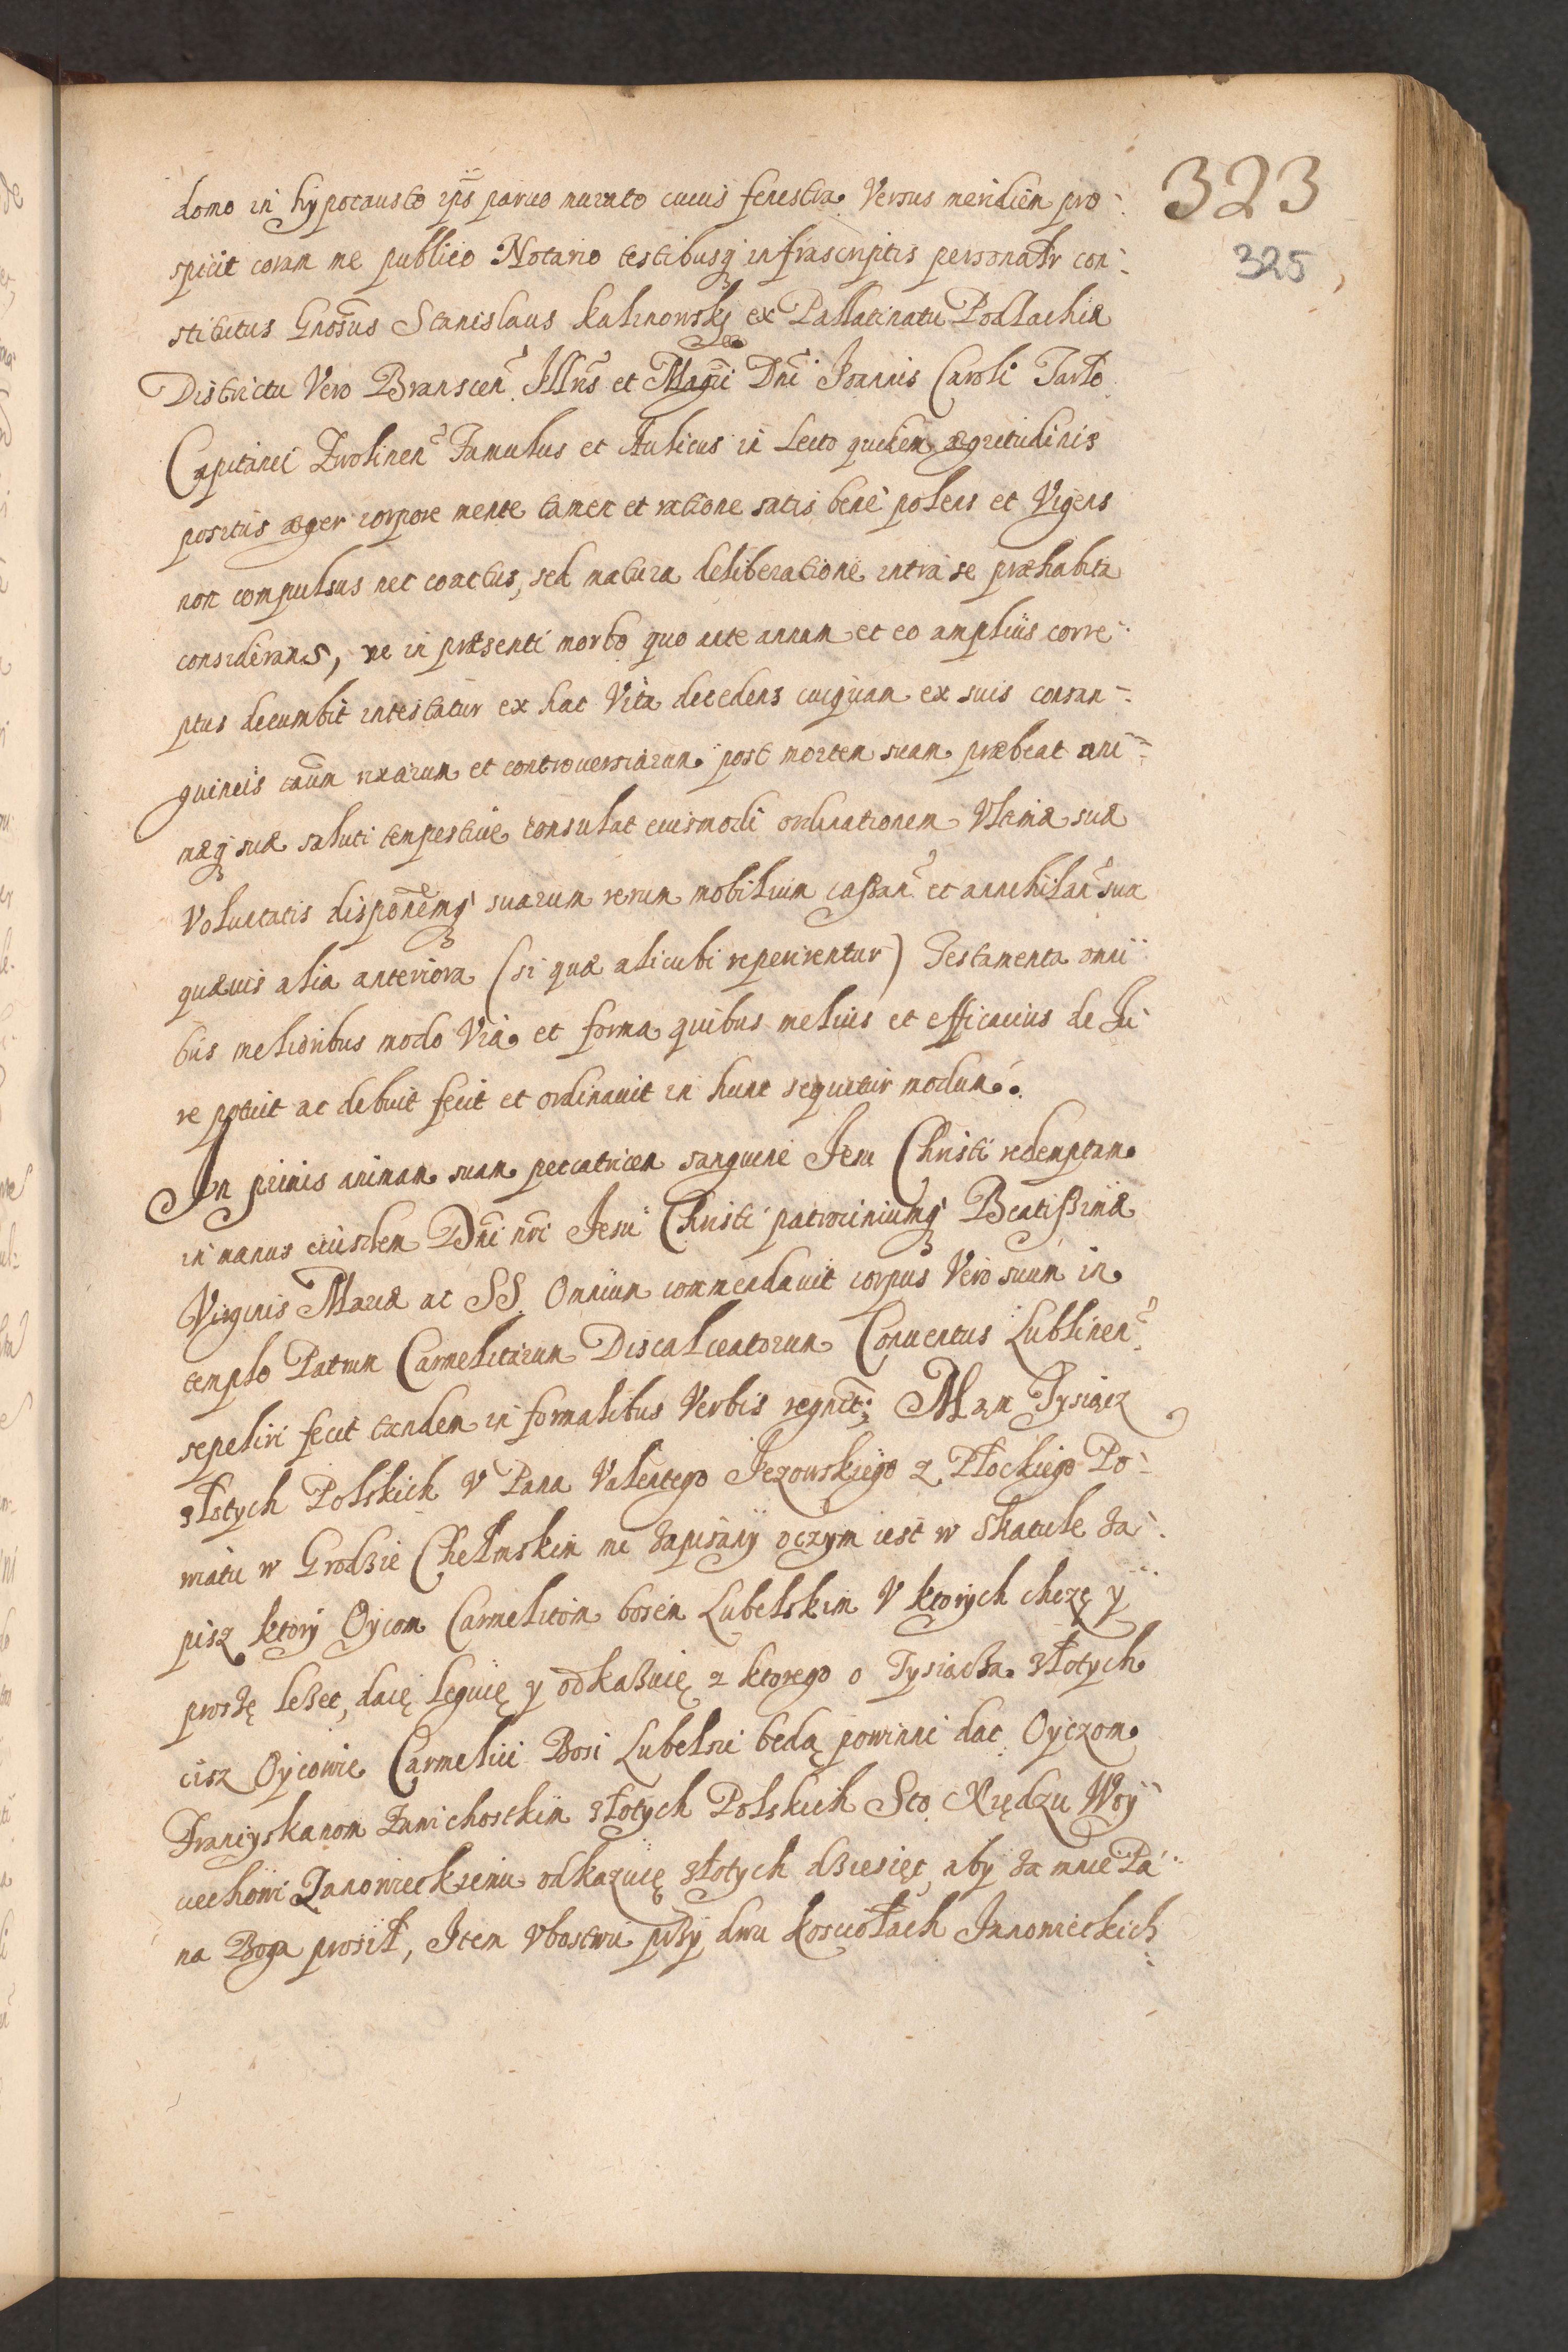 323
325
domo in hypocausto ips paruo murato cuius fenestra Versus meridiem pro
spicit coram me publico Notario testibusq infrascriptis personatr con
stitutus Gnosus Stanislaus Kalinowskj ex Pallatinatu Podlachiæ
Districtu Vero Branscen Illris et Magci Dni Joannis Caroli Tarło
Capitanei Zwolinen Famulus et Aulicus in Lecto quidem ægritudinis
positus æger corpore mente tamen et ratione satis bene polens et Vigens
non compulsus nec coactus, sed matura deliberatione intra se præhabita
considerans, ne in præsenti morbo quo ante annum et eo amplius corre
ptus decumbit intestatur ex hac Vita decedens cuiquam ex suis consan
guineis caum rixarum et controuersiarum post mortem suam præbeat ani
mæq suæ saluti tempestiue consulat eiusmodi ordinationem Vltimæ suæ
Voluntatis disponemq suarum rerum mobilium cassan et annihilan sua
quæuis alia anteriora (si quæ alicubi reperirentur) Testamenta omni
bus melioribus modo Via et forma quibus melius et efficacius de Iu
re potuit ac debuit fecit et ordinauit in hunc sequitur modum.
In primis animam suam peccatricem sanguine Jesu Christi redemptam
in manus eiusdem Dni nri Jesu Christi patrociniumq Beatissimæ
Virginis Mariæ ac SS. Omnium commendauit corpus Vero suum in
templo Patrum Carmelitarum Discalceatorum Conuentus Lublinen
sepeliri fecit tandem in formalibus Verbis Mąm Tysiącz
złotych Polskich V Pana Valentego Jezowskiego z Płockiego Po
wiatu w Grodzie Chełmskim mi zapisany oczym iest w Skatule za
pisz ktory Oycom Carmelitom bosem Lubelskim V ktorych chczę y
proszę leżec, daię leguię y odkazuię z ktorego o Tysiącza złotych
cisz Oycowie Carmelici Bosi Lubelsci będą powinni dac Oyczom
Franciyskanom Zawichostkim złotych Polskich Sto Xiędzu Woy
ciechowi Janowieckiemu odkazuię złotych dziesięc, aby za mnie Pa
na Boga prosił, Item Vbostwu przy dwu Kosciołach Janowieckich